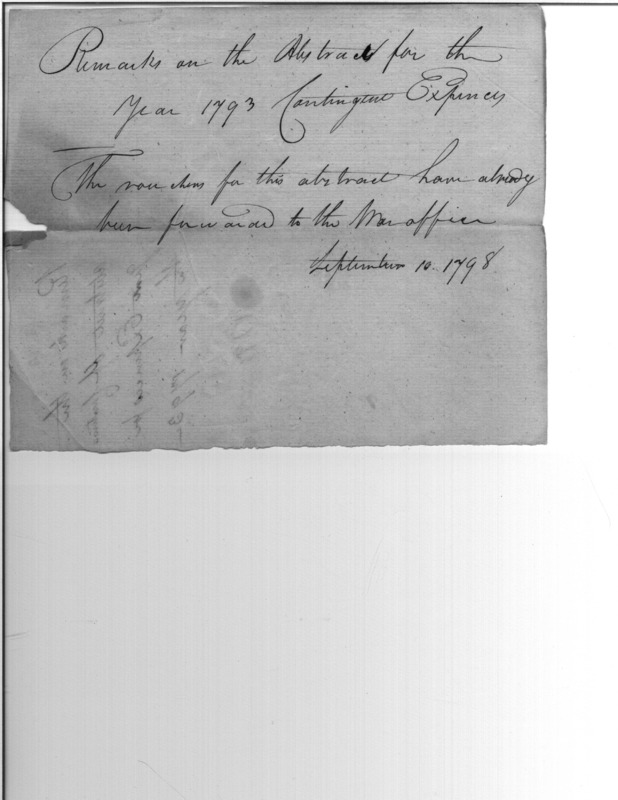 Remarks on the Abstract for the
Year 1793 Contingent Expences
The vouchers for this abstract have already
been forwarded to the War office
September 10. 1798